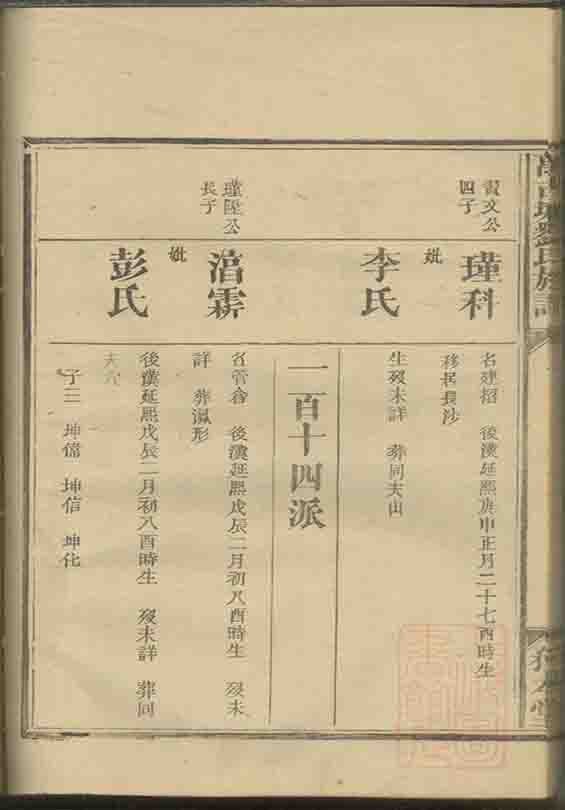 劉氏族
賨文公
四子
瑾科
妣
李氏
名建招 後漢延熙庚申正月二十七酉時生
移居長沙
生歿未詳 葬同夫山
一百十四派
瑾陞公
長子
湇霖
妣
彭氏
名管畲 後漢延熙戊辰二月初八酉時生 歿未
詳 葬瀛形
後漢延熙戊辰二月初八酉時生 歿未詳 葬同
夫穴
子三 坤儅 坤信 坤化